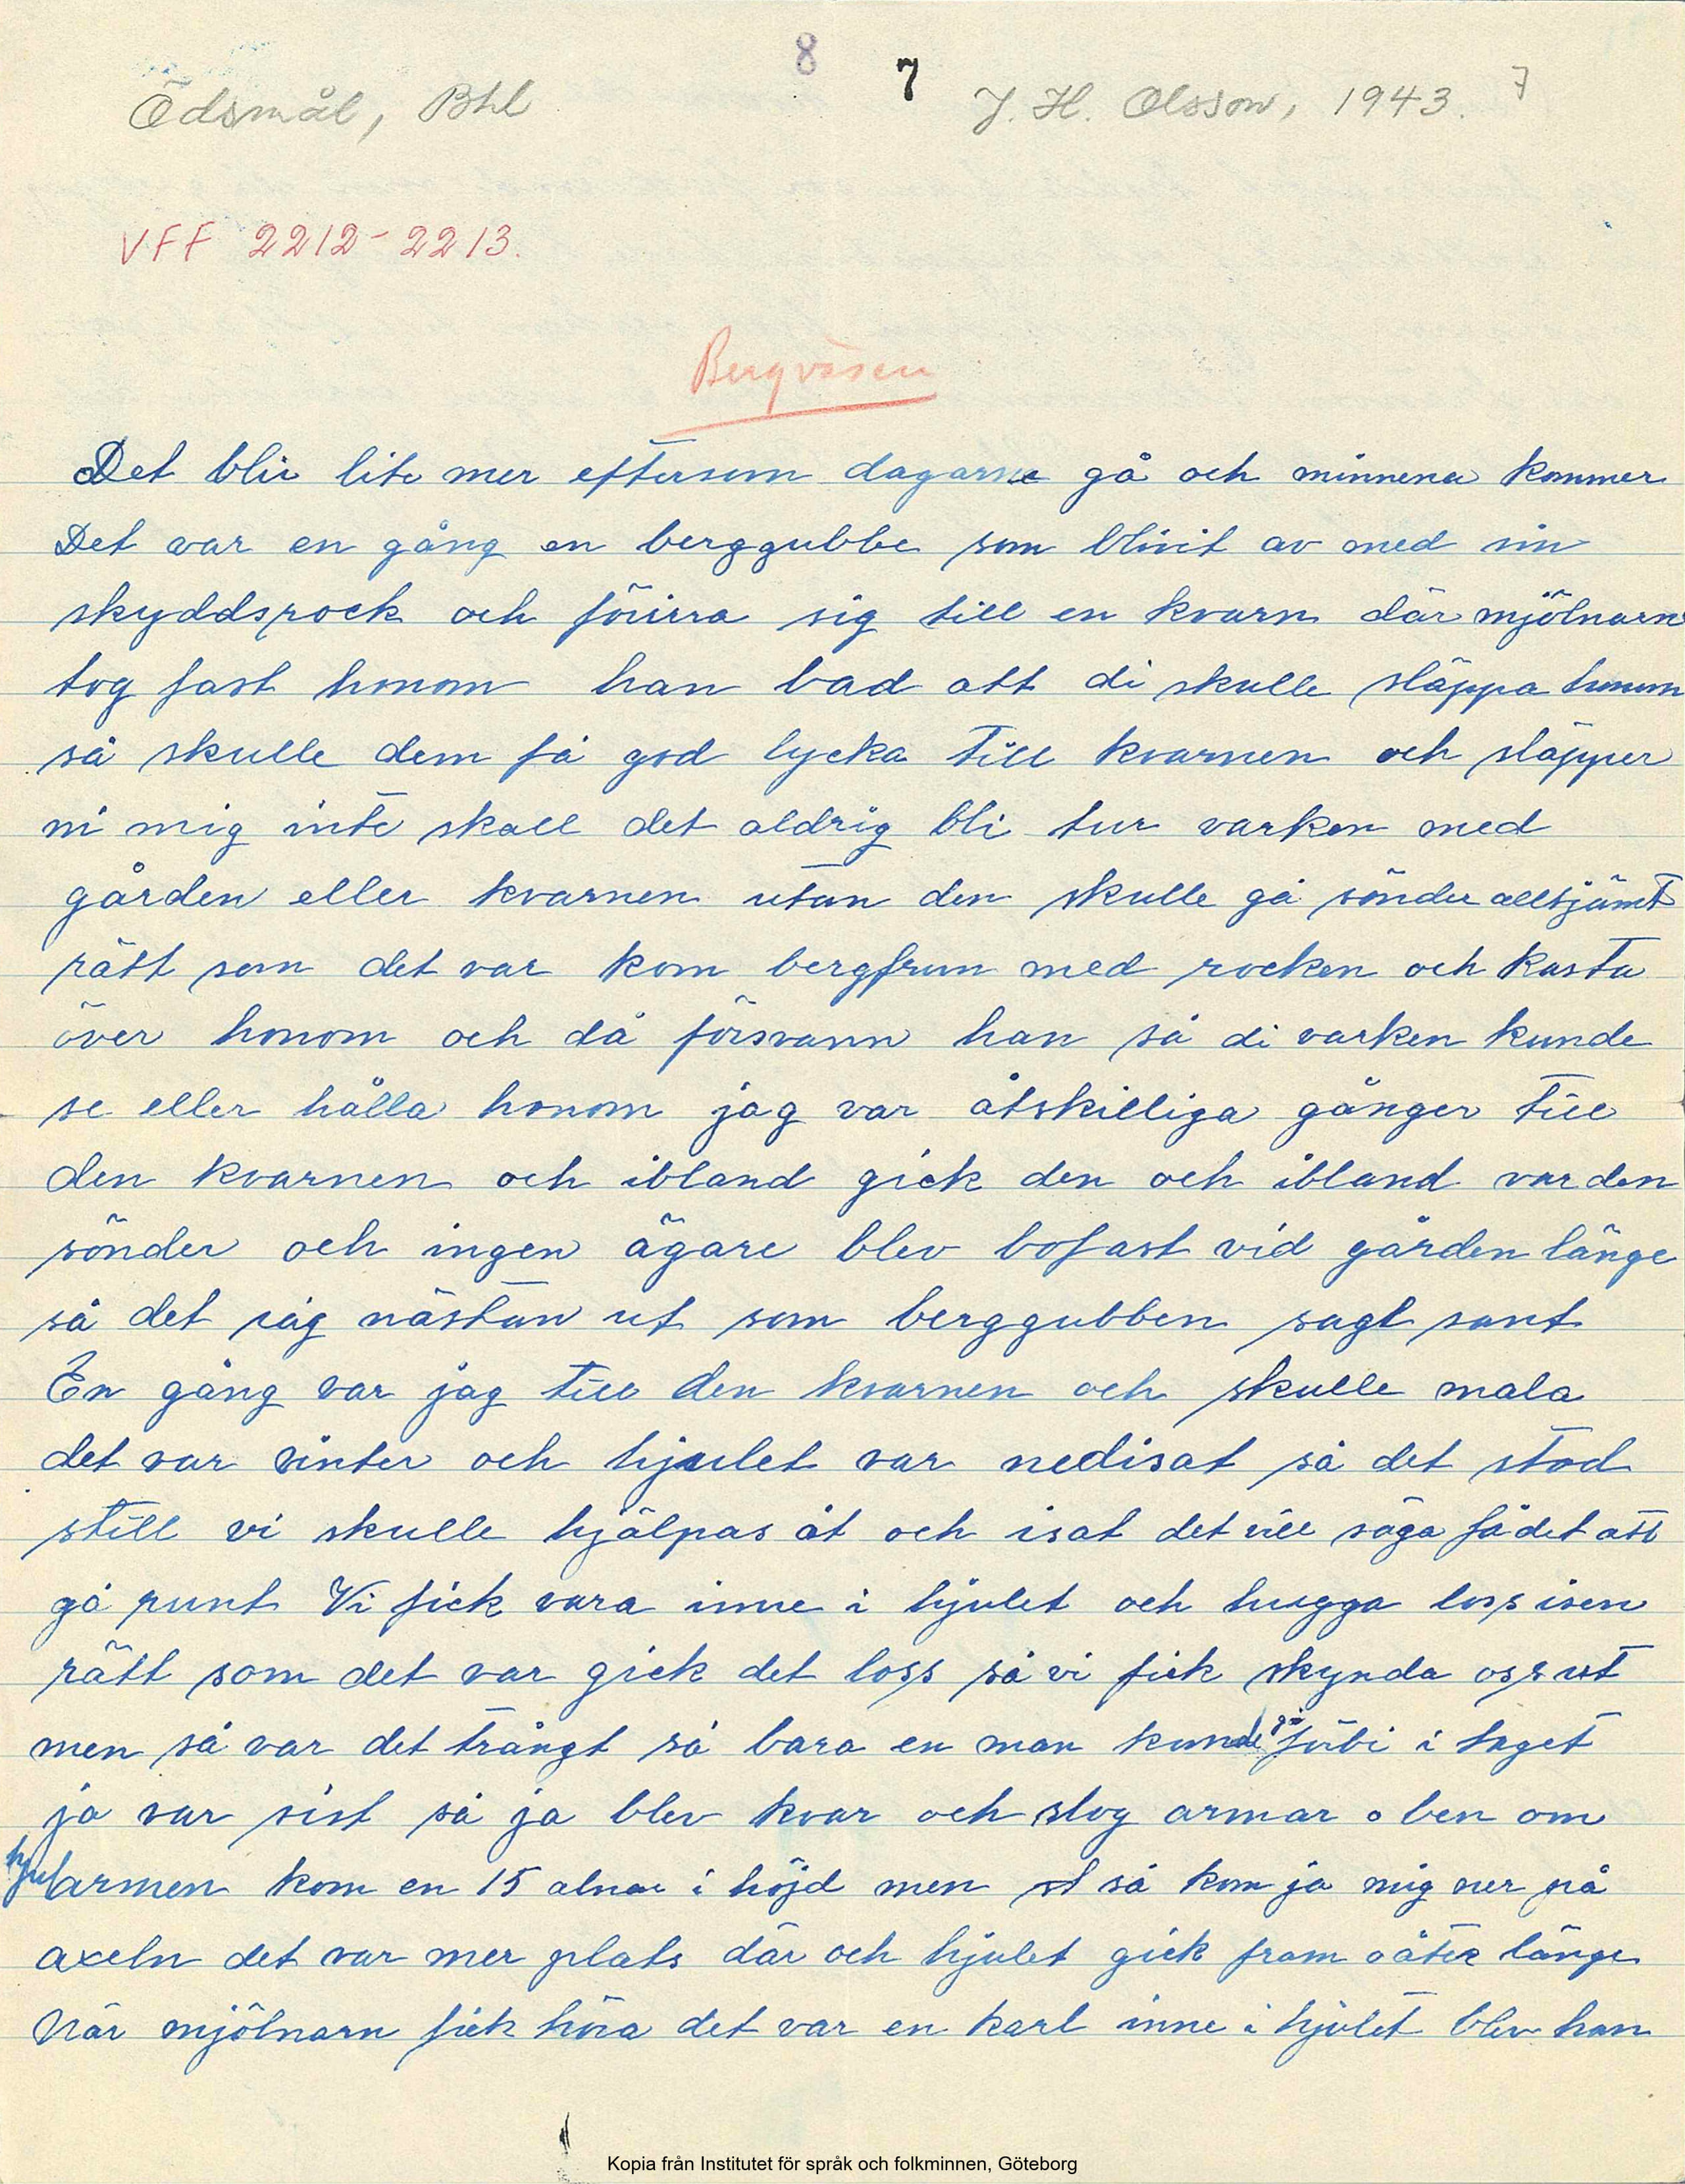 8 7
Ödsmål, Bhl J. H. Olsson, 1943. 7
VFF 2212-2213.
Bergväsen
Det blir lite mer eftersom dagarne gå och minnena kommer
Det var en gång en berggubbe som blivit av med sin
skyddsrock och förirra sig till en kvarn där mjölnarn
tog fast honom han bad att di skulle släppa honom
så skulle dem få god lycka till kvarnen och släpper
ni mig inte skall det aldrig bli tur varken med
gården eller kvarnen utan den skulle gå sönder alltjämt
rätt som det var kom bergfrun med rocken och kasta
över honom och då försvann han så di varken kunde
se eller hålla honom jag var åtskilliga gånger till
den kvarnen och ibland gick den och ibland var den
sönder och ingen ägare blev bofast vid gården länge
så det såg nästan ut som berggubben sagt sant
En gång var jag till den kvarnen och skulle mala
det var vinter och hjulet var nedisat så det stod
still vi skulle hjälpas åt och isat det vill säga få det att
gå runt Vi fick vara inne i hjulet och hugga loss isen
rätt som det var gick det loss så vi fick skynda oss ut
men så var det trångt så bara en man kunde gå förbi i taget
ja var sist så ja blev kvar och slog armar o ben om
hjularmen kom en 15 alnar i höjd men så kom ja mig ner på
axeln det var mer plats där och hjulet gick fram o åter länge
När mjölnarn fick höra det var en karl inne i hjulet blev han
Kopia från Institutet för språk och folkminnen, Göteborg